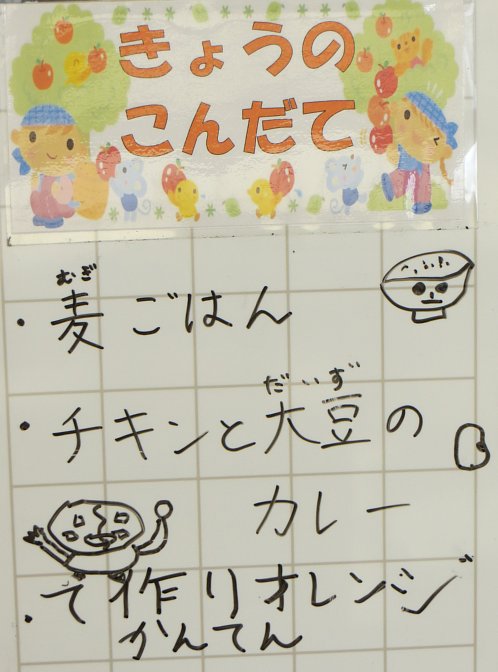 きょうの
こんだて
むぎ
・麦ごはん
だいず
・チキンと大豆の
カレー
・て作りオレンジ
かんてん